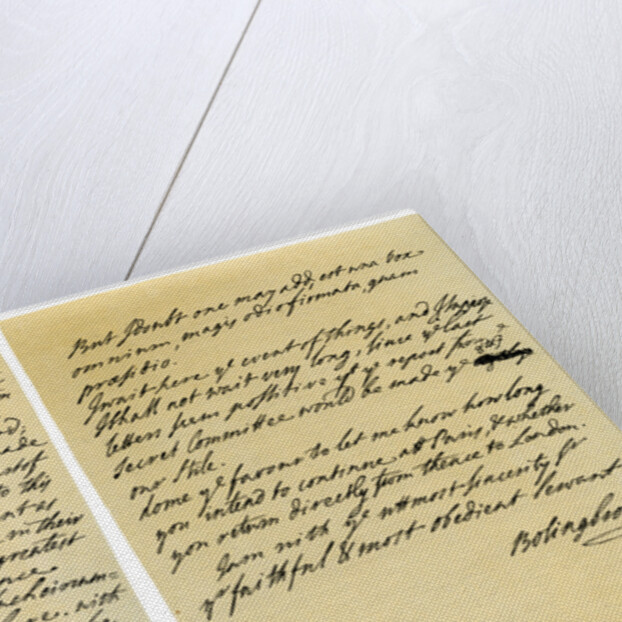 But I doubt one may add, est una vox
omnium, magis odio firmata, quam
præsitio.
I wait here ye event of things, and I suppose
I shall not wait very long, since ye last
letters seem possitive yt ye report from ye
Secret Committee would be made ye
our Stile.
done ye favour to let me know how long
you intend to continue att Paris, & whether
you return directly from thence to London.
I am with ye uttmost sincerity Sr
yr faithful & most obedient Servant
Bolingbro
ade
st of
to this
nt as
in their
greatest
nce
with